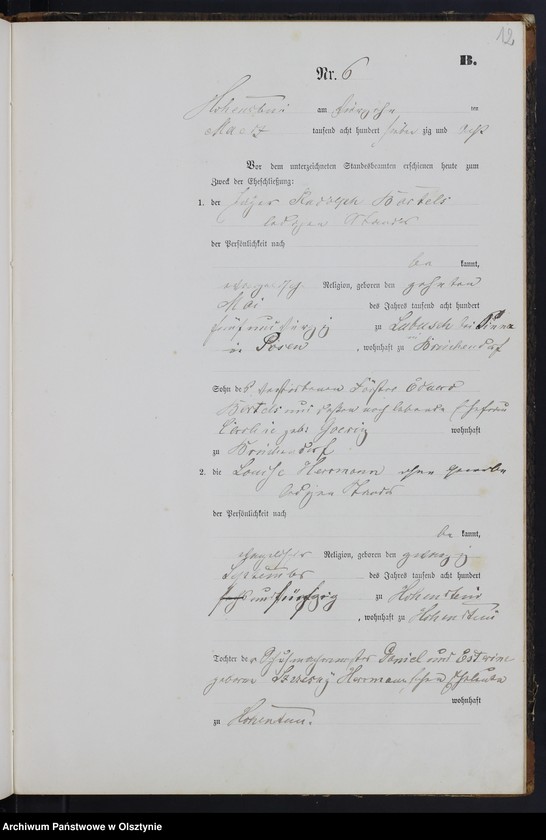 12
B.
Nr. 6
Hohenstein am ten
Maerz tausend acht hundert sieben zig und sechs
Vor dem unterzeichneten Standesbeamten erschienen heute zum
Zweck der Eheschließung:
1. der Jäger Bartels
ledigen Standes
der Persönlichkeit nach
be kannt,
evangelisch Religion, geboren den zehnten
Mai des Jahres tausend acht hundert
fünf und vierzig zu bei Pinne
in Posen, wohnhaft zu
Sohn des verstorbenen Förster Eduard
Bartels und dessen noch lebende Ehefrau
geb: wohnhaft
zu
2. die Louise Herrmann ohne Gewerbe
ledigen Standes
der Persönlichkeit nach
be kannt,
Religion, geboren den
September des Jahres tausend acht hundert
und fünfzig zu Hohenstein
, wohnhaft zu Hohenstein
Tochter der Schuhmachermeister Daniel und
geborne Herrmannschen Eheleute
wohnhaft
zu Hohenstein.
Archiwum Państwowe w Olsztynie